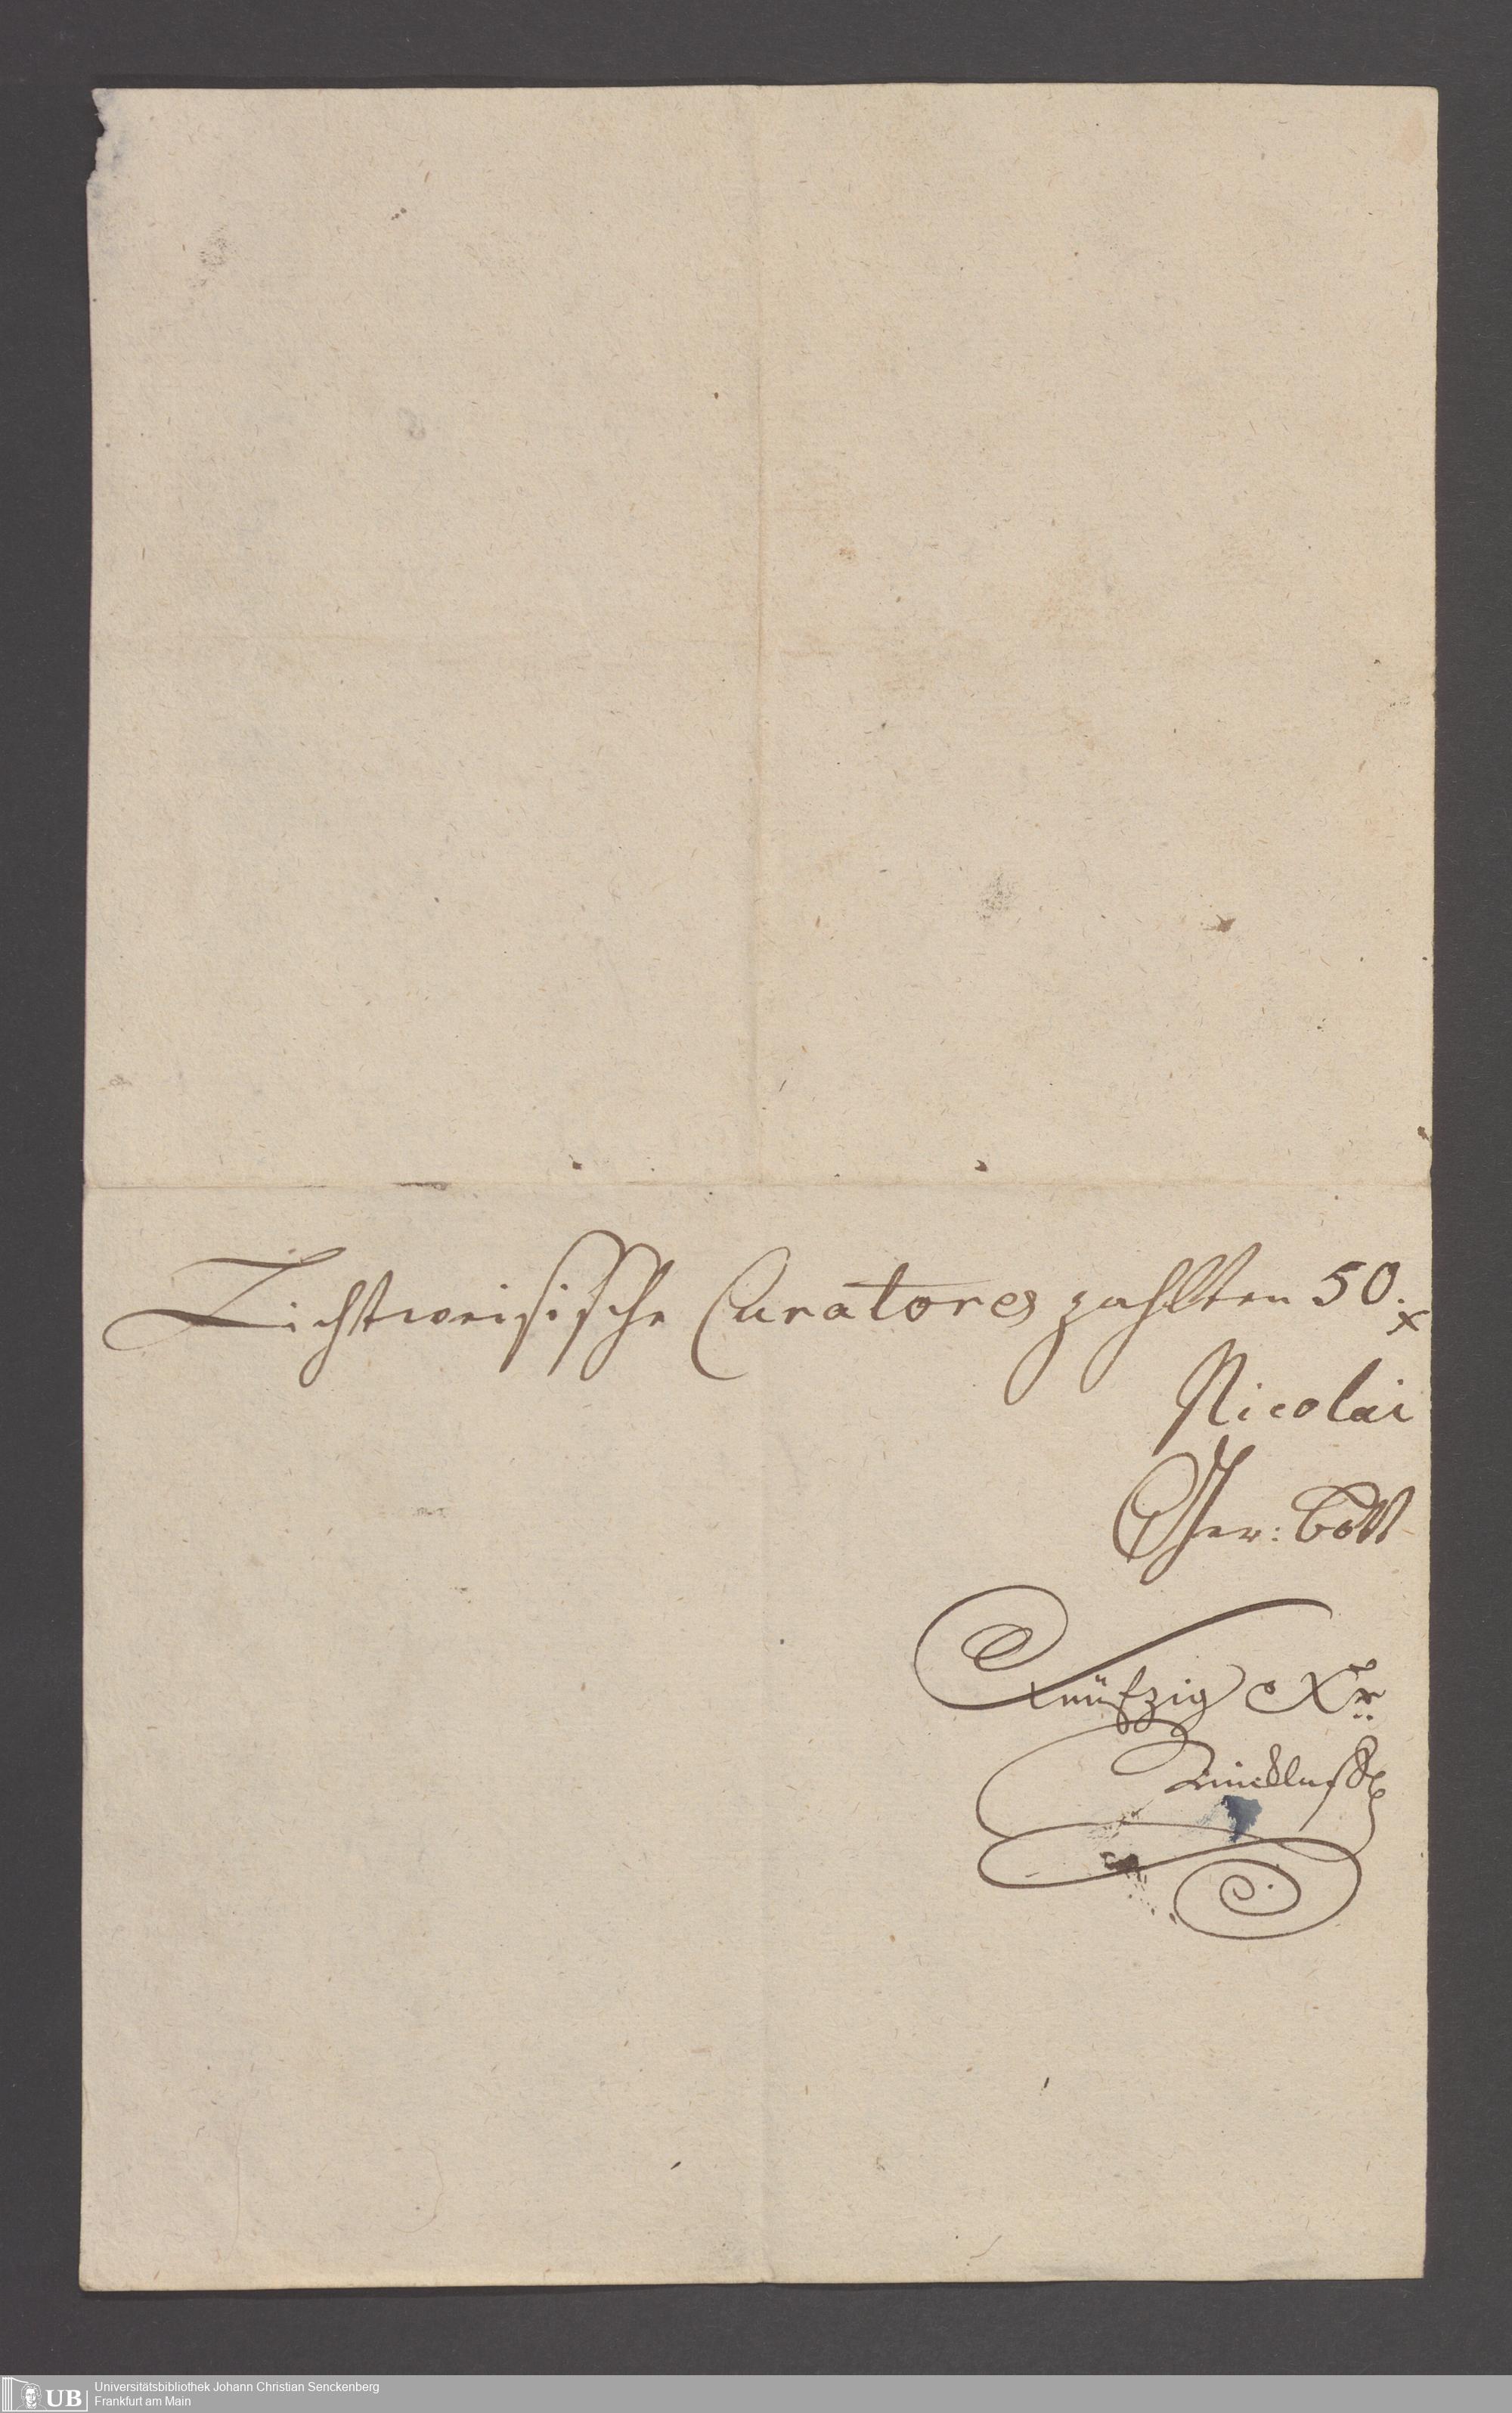 Lichtweisische Curatores zahlten 50. x
Nicolai
Ober: Bott
fünfzig Xr
Universitätsbibliothek Johann Christian Senckenberg
Frankfurt am Main
UB